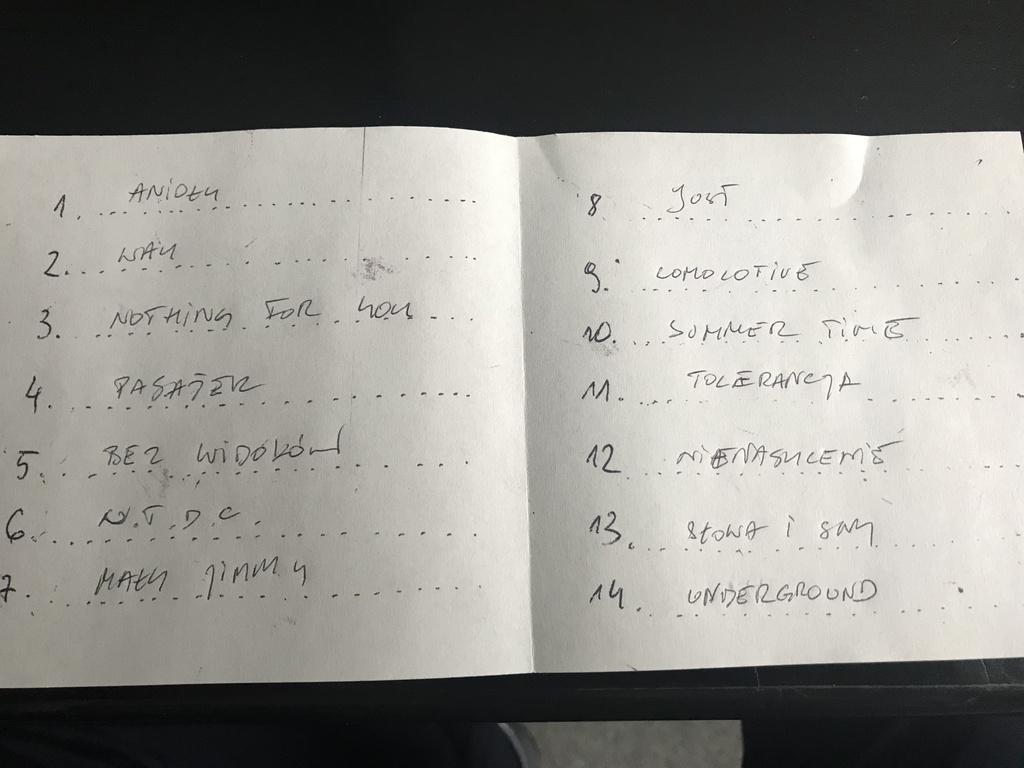 1. ANIOŁY
2. WAY
3. NOTHING FOR YOU
4. PASAŻER
5. BEZ WIDOKÓW
6. N.T.D.C.
7. MAŁY JIMMY
8 JOST
9. LOMOLOTIVE
10. SUMMER TIME
11. TOLERANCJA
12 NIENASYCENIE
13. SŁOWA I SNY
14. UNDERGROUND